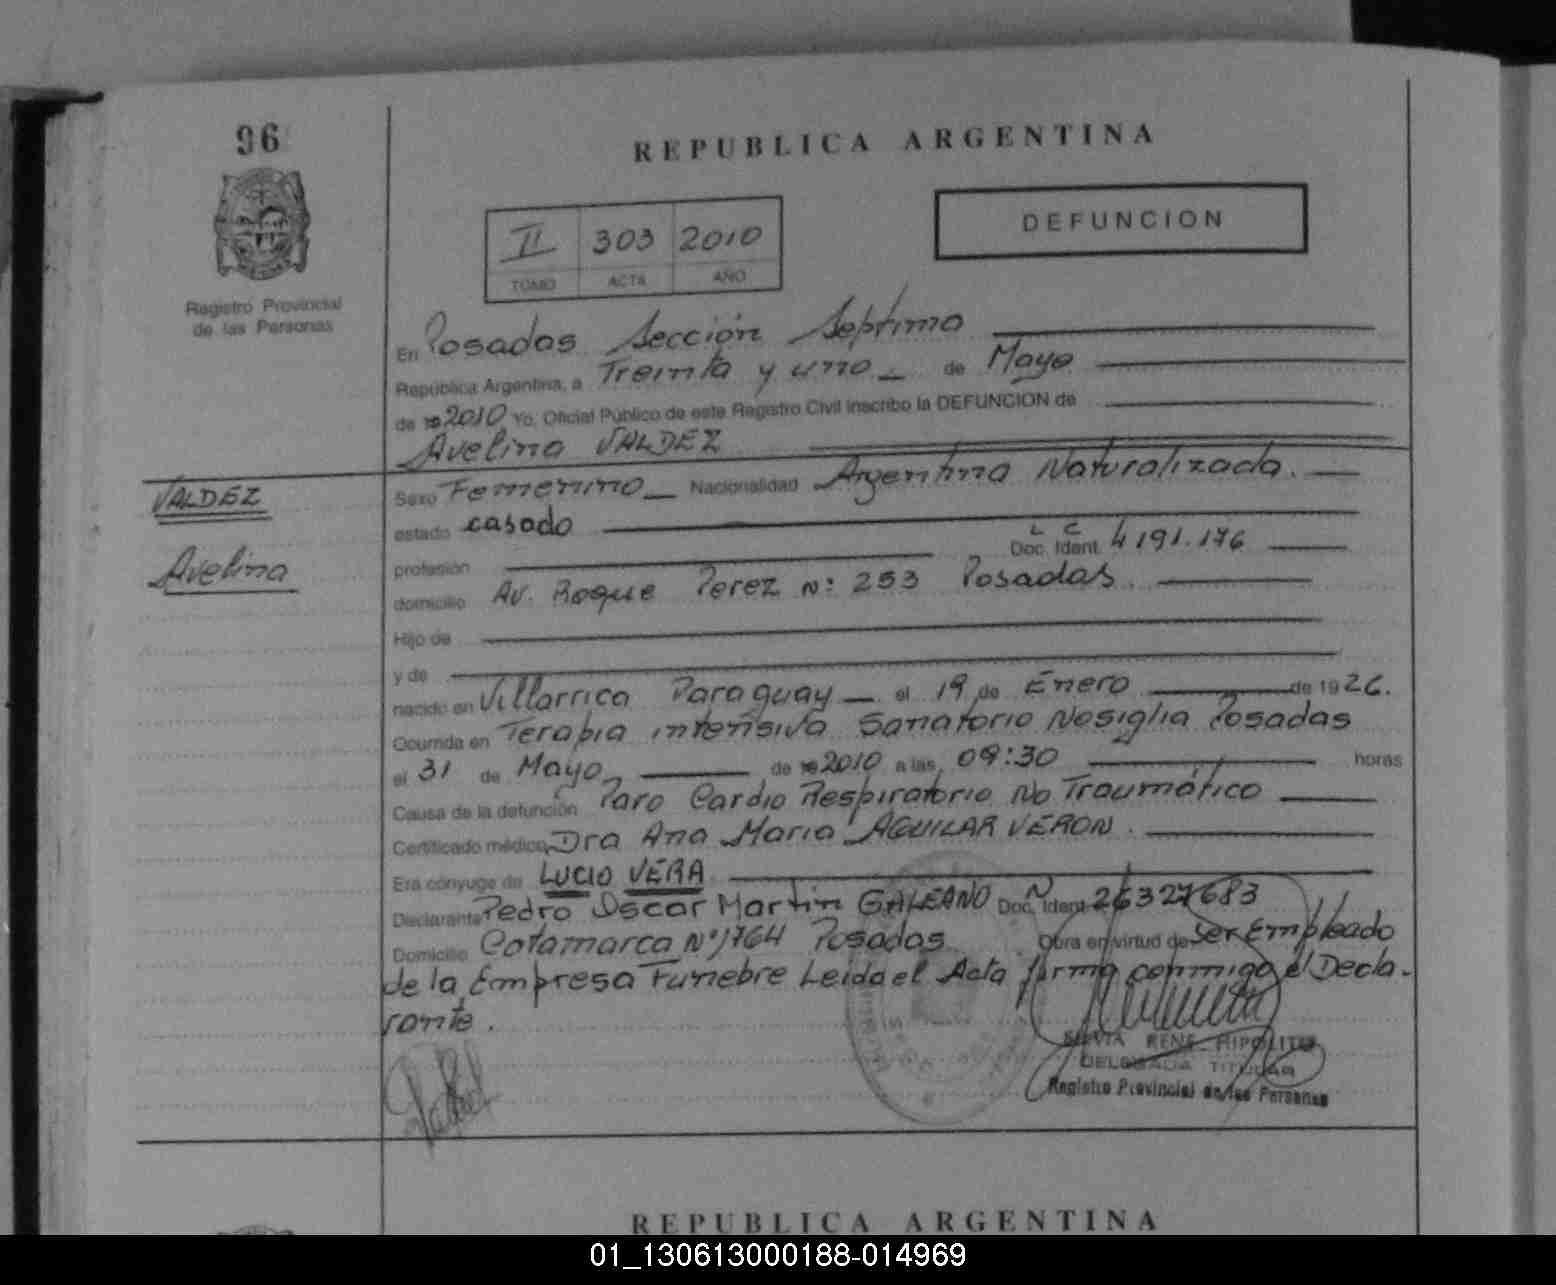 96
REPUBLICA ARGENTINA
II 303 2010
TOMO ACTA AÑO
DEFUNCION
Registro Provincial
de las Personas
En Posadas Sección Septima
República Argentina, a Treinta y uno de Mayo
de 19 2010 Yo, Oficial Público de este Registro Civil inscribo la DEFUNCION de
Avelina VALDEZ
VALDEZ
Avelina
Sexo Femenino Nacionalidad Argentina Naturalizada.
estado casada
profesión Doc. Ident. L C 4191.176
domicilio Av. Roque Perez Nº: 253 Posadas.
Hijo de
y de
nacido en Villarrica Paraguay el 19 de Enero de 1926.
Ocurrida en Terapia intensiva Sanatorio Nosiglia Posadas
el 31 de Mayo de 19 2010 a las 09:30 horas
Causa de la defunción Paro Cardio Respiratorio No Traumático
Certificado médico Dra Ana Maria AGUILAR VERON.
Era cónyuge de LUCIO VERA
Declarante Pedro Oscar Martin GALEANO Doc. Ident. 26327683
Domicilio Catamarca Nº 1764 Posadas Obra en virtud de Ser Empleado
de la Empresa Funebre Leida el Acta firma conmigo el Decla-
rante.
SILVIA RENE HIPOLITO
DELEGADA TITULAR
Registro Provincial de las Personas
REPUBLICA ARGENTINA
01_130613000188-014969